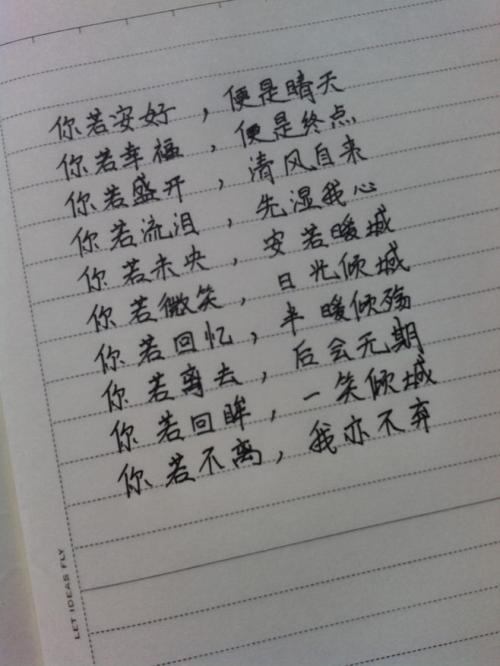 你若安好，便是晴天
你若幸福，便是终点
你若盛开，清风自来
你若流泪，先湿我心
你若未央，安若暖城
你若微笑，日光倾城
你若回忆，半暖倾殇
你若离去，后会无期
你若回眸，一笑倾城
你若不离，我亦不弃
LET IDEAS FLY